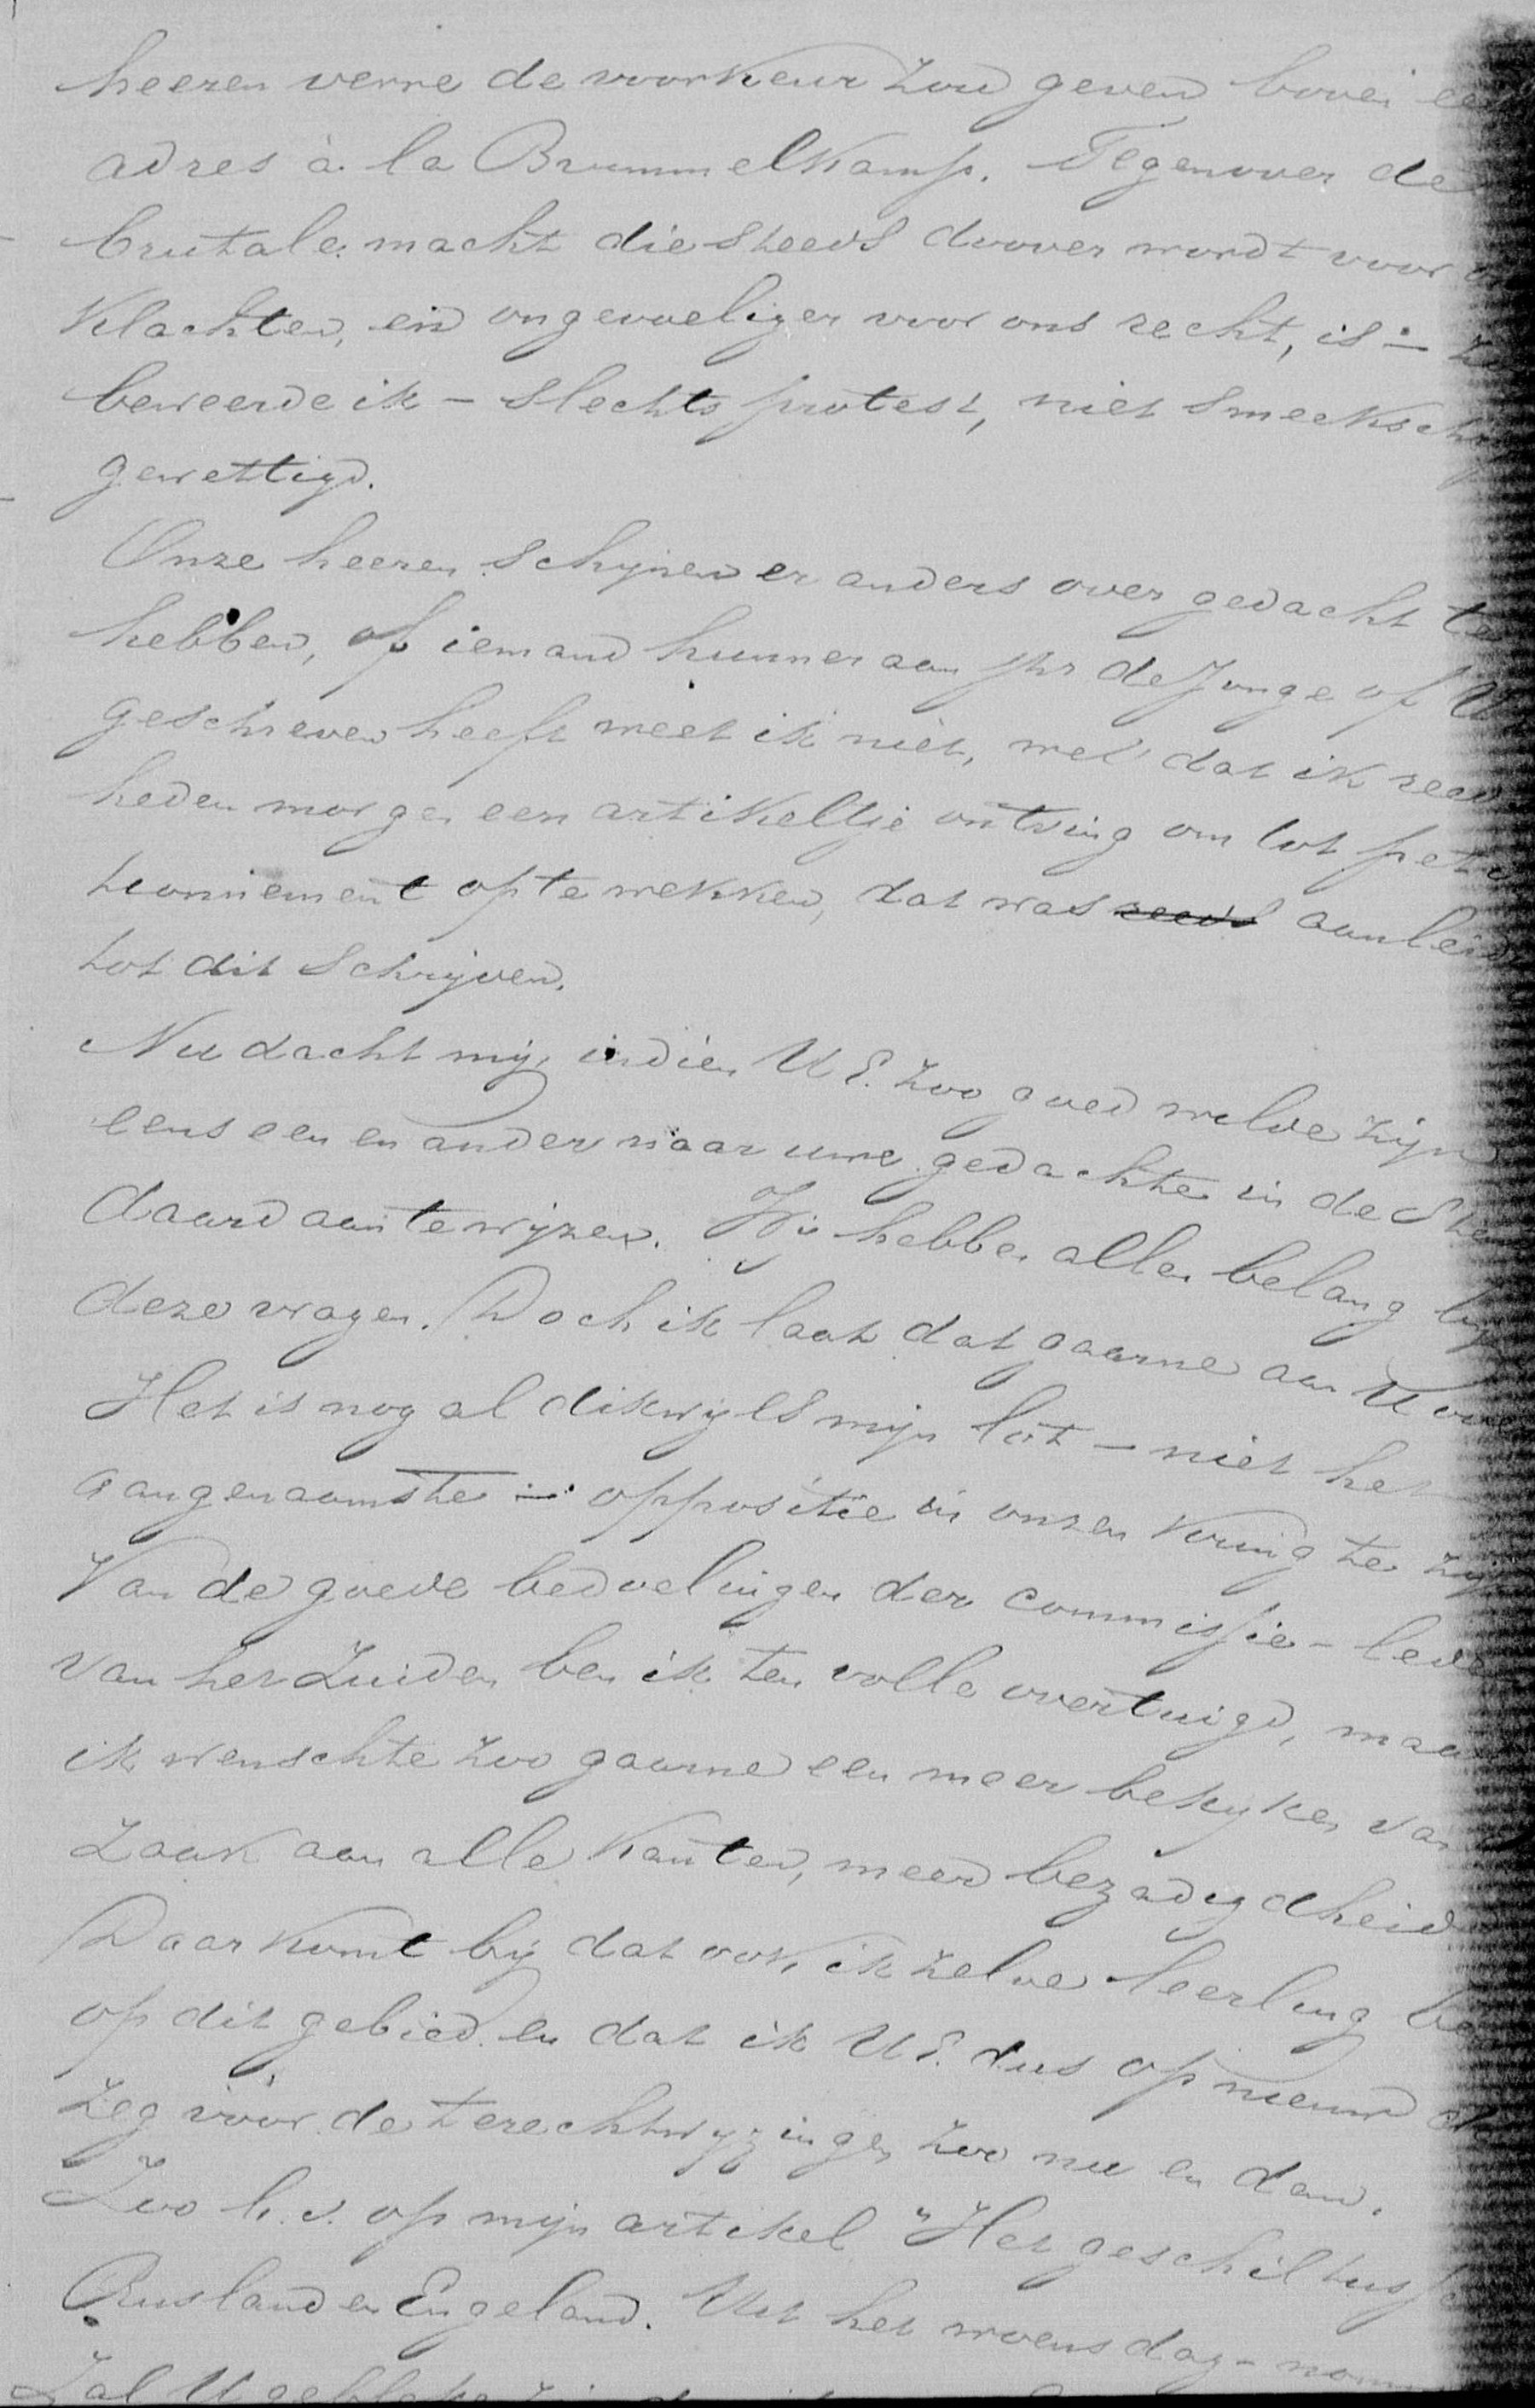 heeren verre de voorkeur zou geven boven
adres à la Brummelkamp. Tegenover de
brutale macht die steeds doover wordt voor
klachten, en ongevoeliger voor ons recht, is –
beweerde ik – slechts protest, niet smeeksch
gewettigd.
Onze heeren schijnen er anders over gedacht te
hebben, of iemand hunner aan jhr de Jonge of U
geschreven heeft weet ik niet, wel dat ik reeds
heden morgen een artikeltje ontving om tot peti
tionnement op te wekken, dat was reeds aanleid
tot dit schrijven.
Nu dacht mij, indien UE. zoo goed wilde zijn
eens een en ander naar uwe gedachte in de Stan
daard aan te wijzen. Wij hebben allen belang bij
deze vragen. Doch ik laat dat gaarne aan U over
Het is nog al dikwijls mijn lot – niet het
aangenaamste – oppositie in onzen kring te zijn
Van de goede bedoelingen der commissie-leden
van het Zuiden ben ik ten volle overtuigd, maar
ik wenschte zoo gaarne een meer bekijken van
zaak aan alle kanten, meer bezadigdheid
Daar komt bij dat ook ik zelve leerling ben
op dit gebied en dat ik UE. dus op nieuw
zeg voor de terechtwijzingen zoo nu en dan.
Zoo b.v. op mijn artikel "Het geschil tuss
Rusland en Engeland. Uit het woensdag-
Zal U gebleken zijn